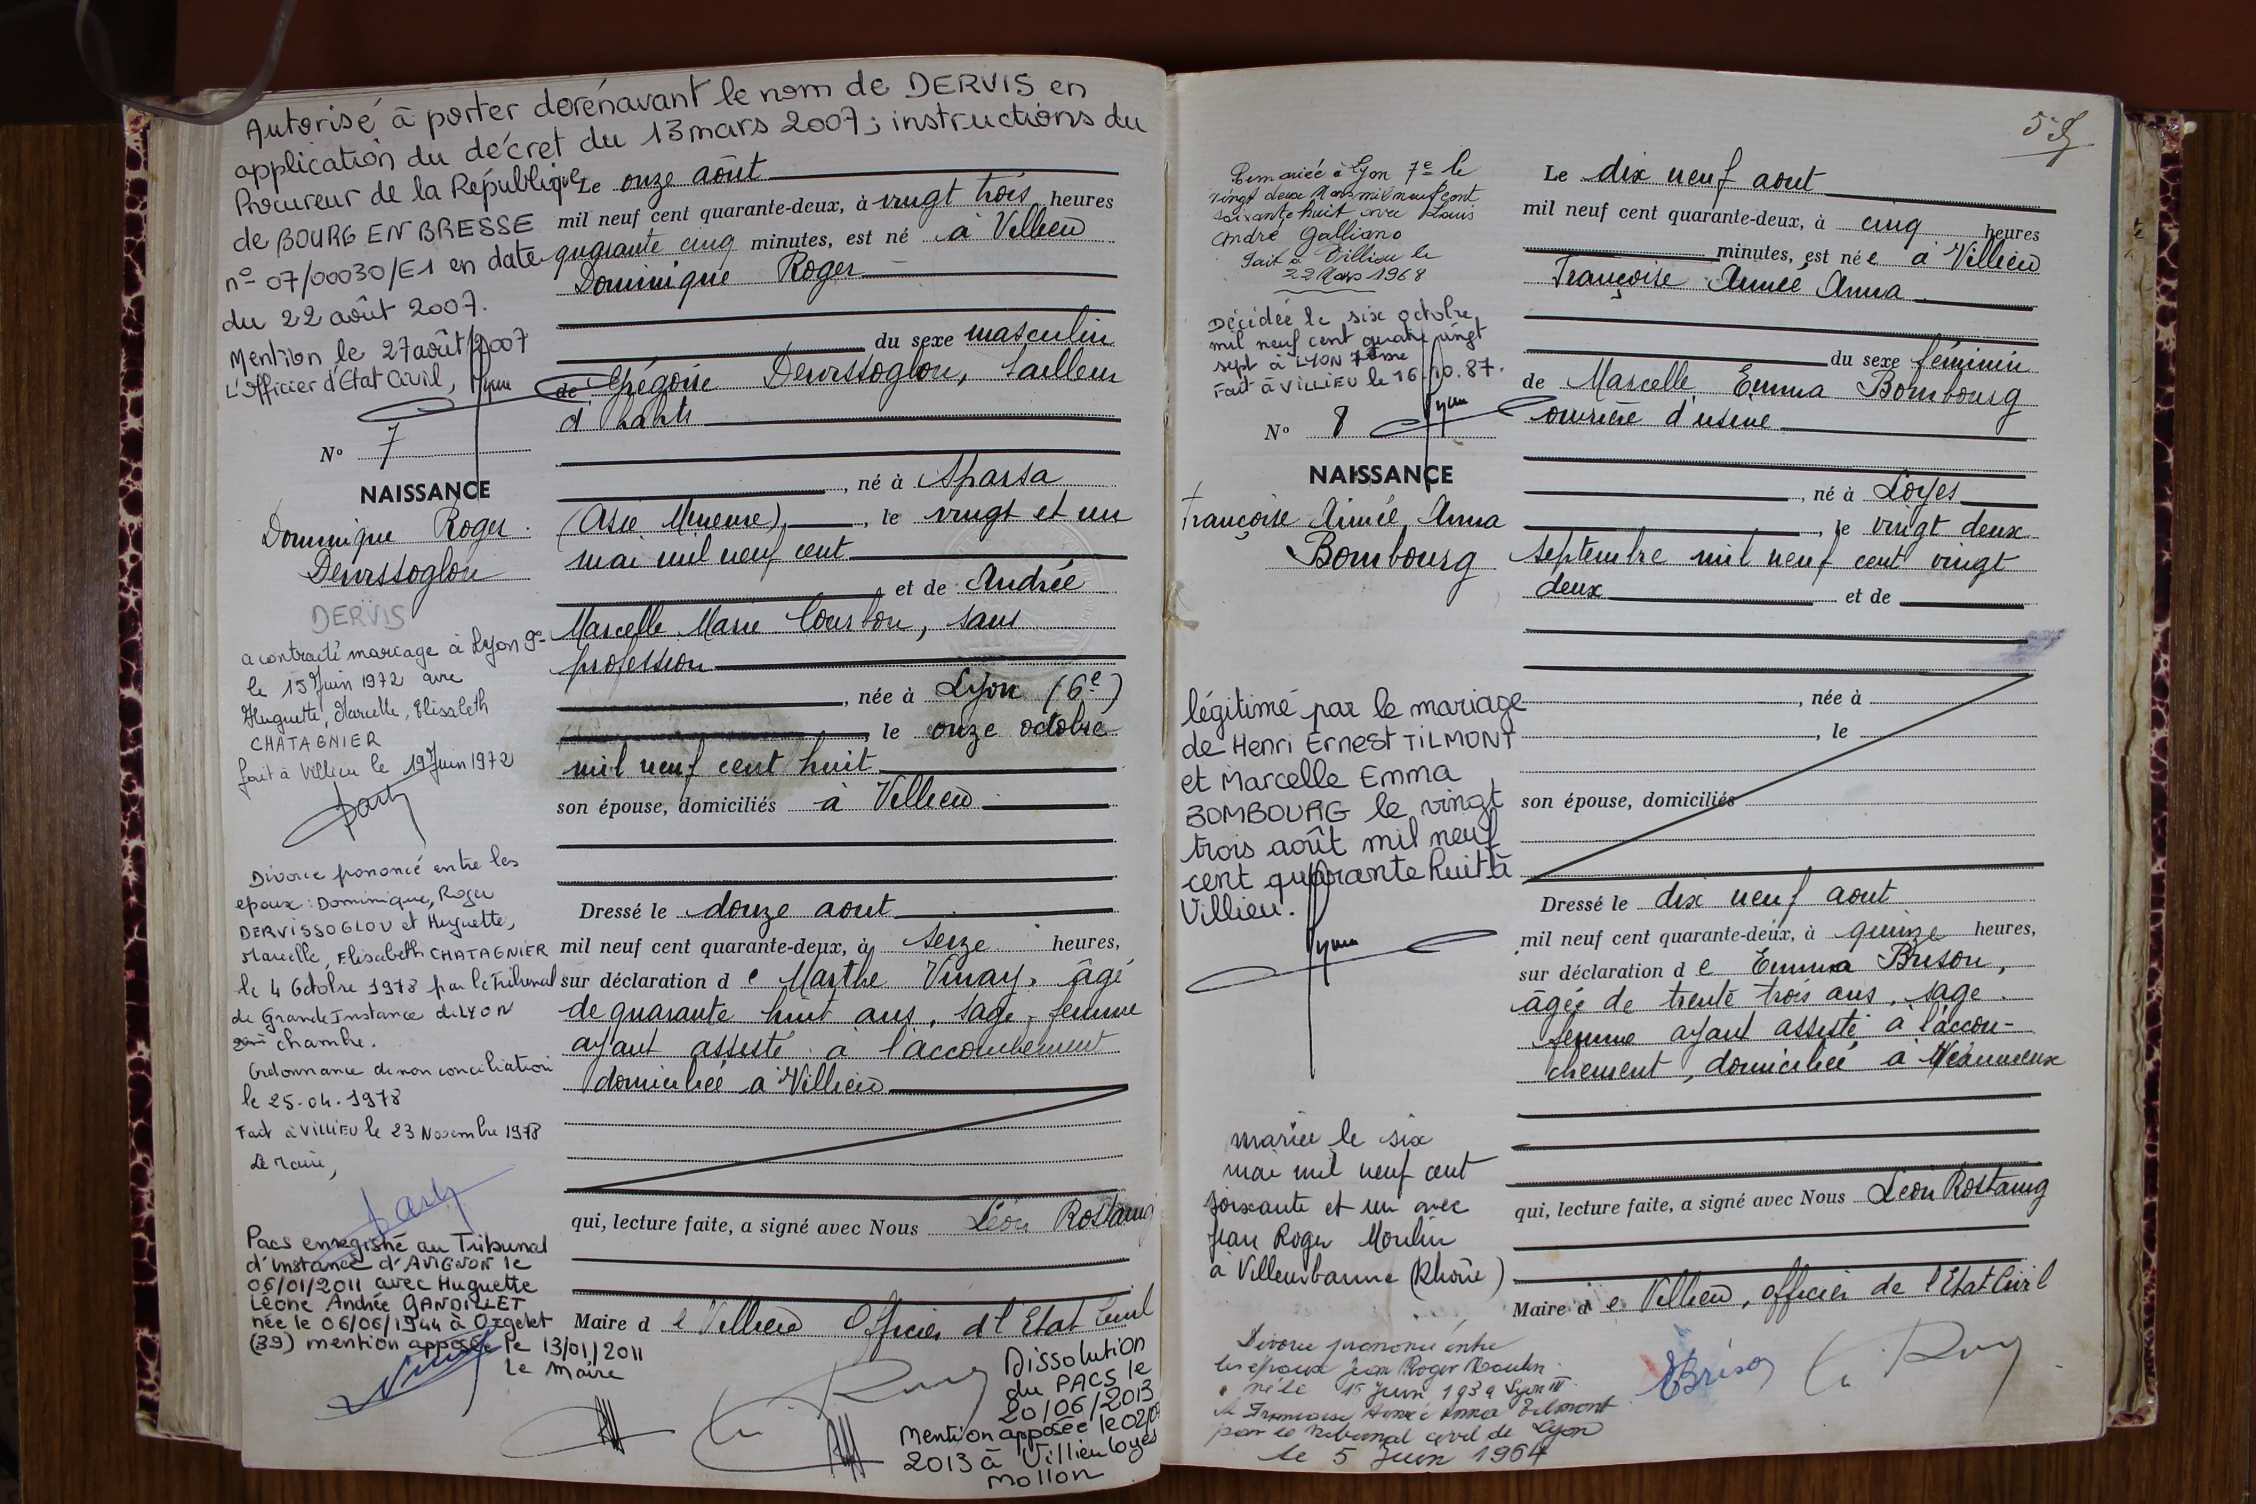 Autorisé à porter dorénavant le nom de DERVIS en
application du décret du 13 mars 2007; instructions du
Procureur de la République
de BOURG EN BRESSE
n° 07/00030/E1 en date
du 22 août 2007.
Mention le 27 août 2007
L'Officier d'Etat Civil,
N° 7
NAISSANCE
Dominique Roger
Dervissoglou
DERVIS
a contracté mariage à Lyon 9e
le 15 Juin 1972 avec
Huguette, Marcelle, Elisabeth
CHATAGNIER
fait à Villieu le 19 Juin 1972
Divorce prononcé entre les
epoux : Dominique, Roger
DERVISSOGLOU et Huguette,
Marcelle, Elisabeth CHATAGNIER
le 4 Octobre 1978 par le Tribunal
de Grande Instance de LYON
chambre.
Ordonnance de non conciliation
le 25.04.1978
Fait à VILLIEU le 23 Novembre 1978
Le Maire,
Pacs enregistré au Tribunal
d'instance d'AVIGNON le
06/01/2011 avec Huguette
Léone Andrée GANDILLET
née le 06/06/1944 à Orgelet
(39) mention apposée le 13/01/2011
Le Maire
Le onze août
mil neuf cent quarante-deux, à vingt trois heures
quarante cinq minutes, est né à Villieu
Dominique Roger
du sexe masculin
de Grégoire Dervissoglou, tailleur
d'habits
, né à Sparta
(Asie Mineure), , le vingt et un
mai mil neuf cent
et de Andrée
Marcelle Marie Courbou, sans
profession
, née à Lyon (6e)
, le onze octobre
mil neuf cent huit
son épouse, domiciliés à Villieu
Dressé le douze aout
mil neuf cent quarante-deux, à seize heures,
sur déclaration d e Marthe Vinay, âgé
de quarante huit ans, sage-femme
ayant assisté à l'accouchement
domiciliée à Villieu
qui, lecture faite, a signé avec Nous Léon Rostaing
Maire d e Villieu Officier d l'Etat Civil
Dissolution
du PACS le
20/06/2013
Mention apposée le 02/07
2013 à Villieu Loyes
Mollon
58
Remariée à Lyon 7e le
vingt deux Mars mil neuf cent
soixante huit avec Louis
André Galliano
Fait à Villieu le
22 Mars 1968
Décidée le six octobre
mil neuf cent quatre vingt
sept à LYON 7ème
Fait à VILLIEU le 16.10.87.
N° 8
NAISSANCE
Françoise Aimée Anna
Bombourg
légitimé par le mariage
de Henri Ernest TILMONT
et Marcelle Emma
BOMBOURG le vingt
trois août mil neuf
cent quarante huit à
Villieu.
mariée le six
mai mil neuf cent
soixante et un avec
Jean Roger Moulin
à Villeurbanne (Rhône)
Divorce prononcé entre
les époux Jean Roger Moulin
né le 15 Juin 1939 Lyon
et Françoise Aimée Anna Tilmont
par le tribunal civil de Lyon
le 5 Juin 1964
Le dix neuf aout
mil neuf cent quarante-deux, à cinq heures
minutes, est né e à Villieu
Françoise Aimée Anna
du sexe féminin
de Marcelle Emma Bombourg
ouvrière d'usine
, né à Loyes
, le vingt deux
septembre mil neuf cent vingt
deux et de
, née à
, le
son épouse, domiciliés
Dressé le dix neuf aout
mil neuf cent quarante-deux, à quinze heures,
sur déclaration d e Emma Brison,
âgée de trente trois ans, sage
femme ayant assisté à l'accou-
chement, domiciliée à Méximieux
qui, lecture faite, a signé avec Nous Léon Rostaing
Maire d e Villieu, officier de l'Etat Civil
EBrison